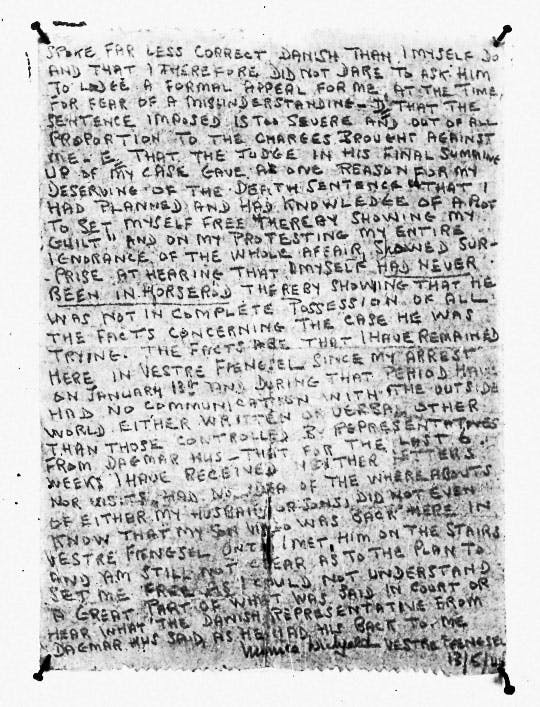 SPOKE FAR LESS CORRECT DANISH THAN I MYSELF DO
AND THAT I THEREFORE DID NOT DARE TO ASK HIM
TO LODGE A FORMAL APPEAL FOR ME, AT THE TIME,
FOR FEAR OF A MISUNDERSTANDING – D THAT THE
SENTENCE IMPOSED IS TOO SEVERE AND OUT OF ALL
PROPORTION TO THE CHARGES BROUGHT AGAINST
ME – E, THAT THE JUDGE IN HIS FINAL SUMMING
UP OF MY CASE GAVE AS ONE REASON FOR MY
DESERVING OF THE DEATH SENTENCE "THAT I
HAD PLANNED AND HAD KNOWLEDGE OF A PLOT
TO SET MYSELF FREE THEREBY SHOWING MY
GUILT" AND ON MY PROTESTING MY ENTIRE
IGNORANCE OF THE WHOLE AFFAIR, SHOWED SUR-
PRISE AT HEARING THAT I MYSELF HAD NEVER
BEEN IN HORSERØD THEREBY SHOWING THAT HE
WAS NOT IN COMPLETE POSSESSION OF ALL
THE FACTS CONCERNING THE CASE HE WAS
TRYING. THE FACTS ARE THAT I HAVE REMAINED
HERE IN VESTRE FÆNGSEL SINCE MY ARREST
ON JANUARY 13th AND DURING THAT PERIOD HAVE
HAD NO COMMUNICATION WITH THE OUTSIDE
WORLD EITHER WRITTEN OR VERBAL OTHER
THAN THOSE CONTROLLED BY REPRESENTATIVES
FROM DAGMAR HUS – THAT FOR THE LAST 6
WEEKS I HAVE RECEIVED NEITHER LETTERS
NOR VISITS, HAD NO IDEA OF THE WHEREABOUTS
OF EITHER MY HUSBAND OR SONS, DID NOT EVEN
KNOW THAT MY SON VIGGO WAS BACK HERE IN
VESTRE FÆNGSEL UNTIL I MET HIM ON THE STAIRS
AND AM STILL NOT CLEAR AS TO THE PLAN TO
SET ME FREE AS I COULD NOT UNDERSTAND
A GREAT PART OF WHAT WAS SAID IN COURT OR
HEAR WHAT THE DANISH REPRESENTATIVE FROM
DAGMAR HUS SAID, AS HE HAD HIS BACK TO ME
Monica Wichfeld VESTRE FÆNGSEL
13/5/44